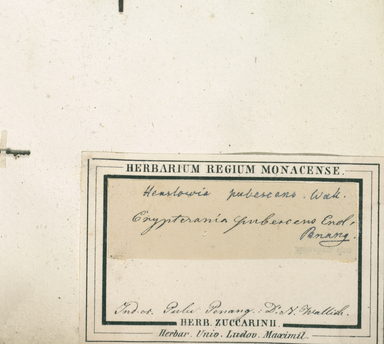 HERBARIUM REGIUM MONACENSE.
Henslowia pubescens. Wall.
Crypteronia pubescens Endl.
Penang.
Ind. or. Pulu Penang: Dr. N. Wallich.
HERB. ZUCCARINII.
Herbar. Univ. Ludov. Maximil.